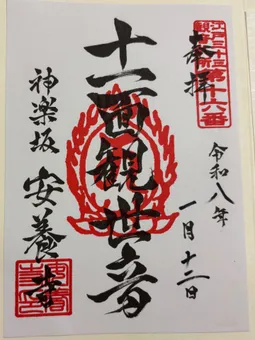 奉拝
江戸三十三
観音札所第十六番
令和八年
一月十二日
十一面観世音
神楽坂
安養寺